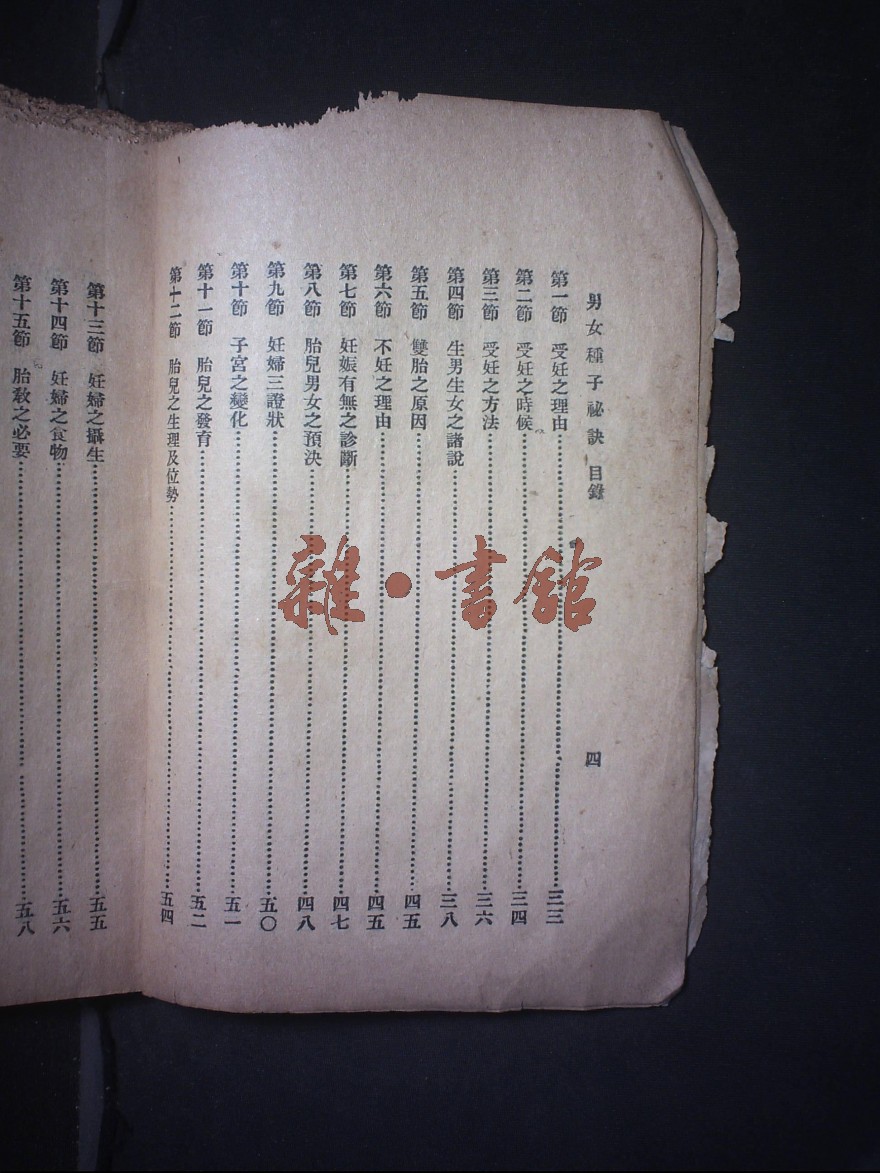 男女種子祕訣 目錄 四
第一節 受妊之理由 三三
第二節 受妊之時候 三四
第三節 受妊之方法 三六
第四節 生男生女之諸說 三八
第五節 雙胎之原因 四五
第六節 不妊之理由 四五
第七節 妊娠有無之診斷 四七
第八節 胎兒男女之預決 四八
第九節 妊婦三證狀 五〇
第十節 子宮之變化 五一
第十一節 胎兒之發育 五二
第十二節 胎兒之生理及位勢 五四
第十三節 妊婦之攝生 五五
第十四節 妊婦之食物 五六
第十五節 胎教之必要 五八
雜·書館